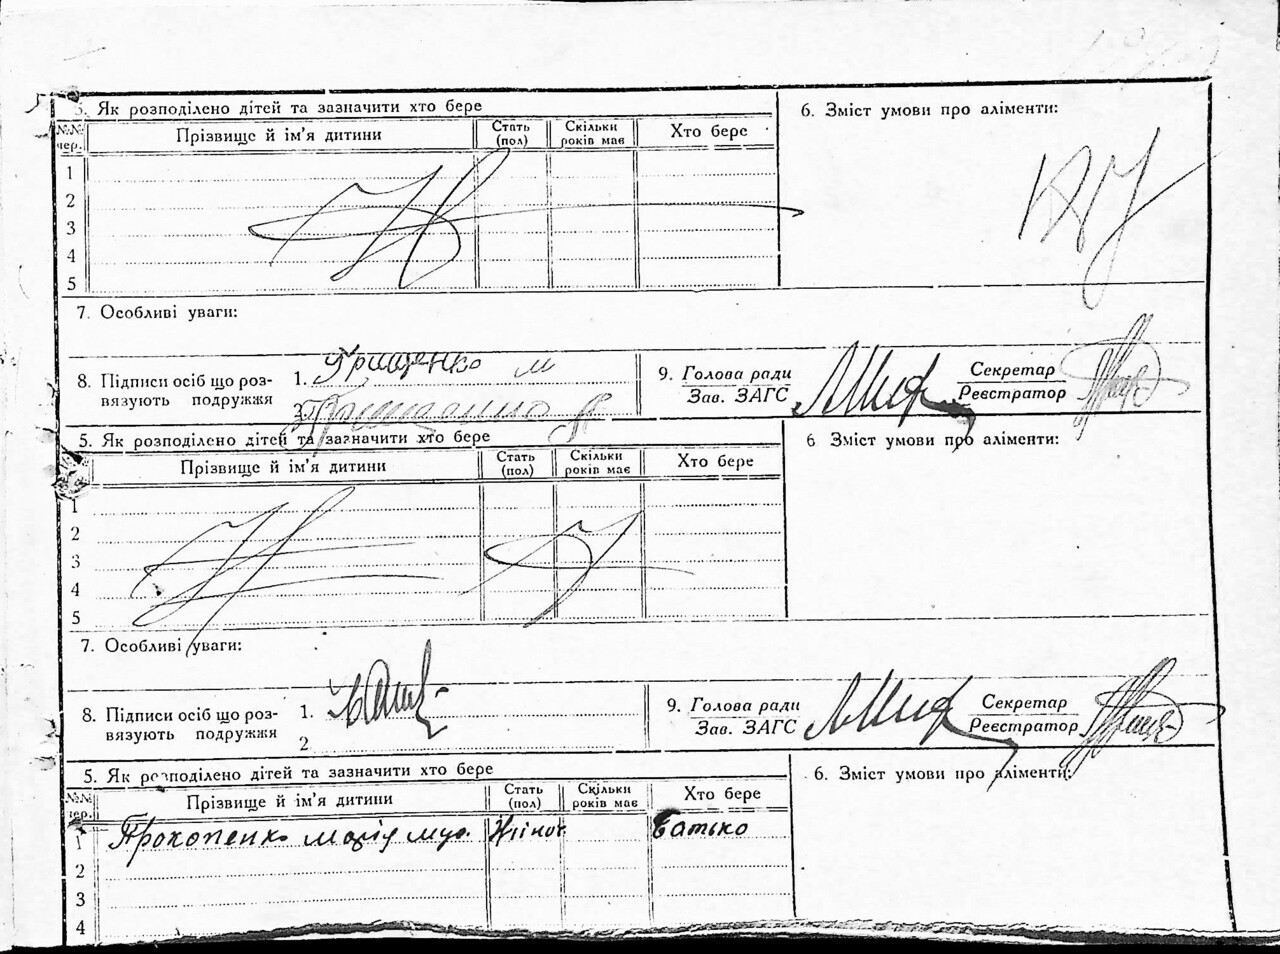 5. Як розподілено дітей та зазначити хто бере
6. Зміст умови про аліменти:
№№ чер. Прізвище й ім'я дитини Стать (пол) Скільки років має Хто бере
1
2
3
4
5
7. Особливі уваги:
8. Підписи осіб що роз-
вязують подружжя
1. Грищенко М
2.
9. Голова ради
Зав. ЗАГС
Секретар
Реєстратор
5. Як розподілено дітей та зазначити хто бере
6 Зміст умови про аліменти:
Прізвище й ім'я дитини Стать (пол) Скільки років має Хто бере
1
2
3
4
5
7. Особливі уваги:
8. Підписи осіб що роз-
вязують подружжя
1.
2
9. Голова ради
Зав. ЗАГС
Секретар
Реєстратор
5. Як розподілено дітей та зазначити хто бере
6. Зміст умови про аліменти:
№№ чер. Прізвище й ім'я дитини Стать (пол) Скільки років має Хто бере
1 Прокопенко Марія Батько
2
3
4